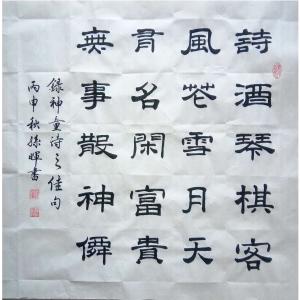 詩酒琴棋客
風花雪月天
有名閑富貴
無事散神僊
錄神童詩之佳句
丙申秋孫暉書